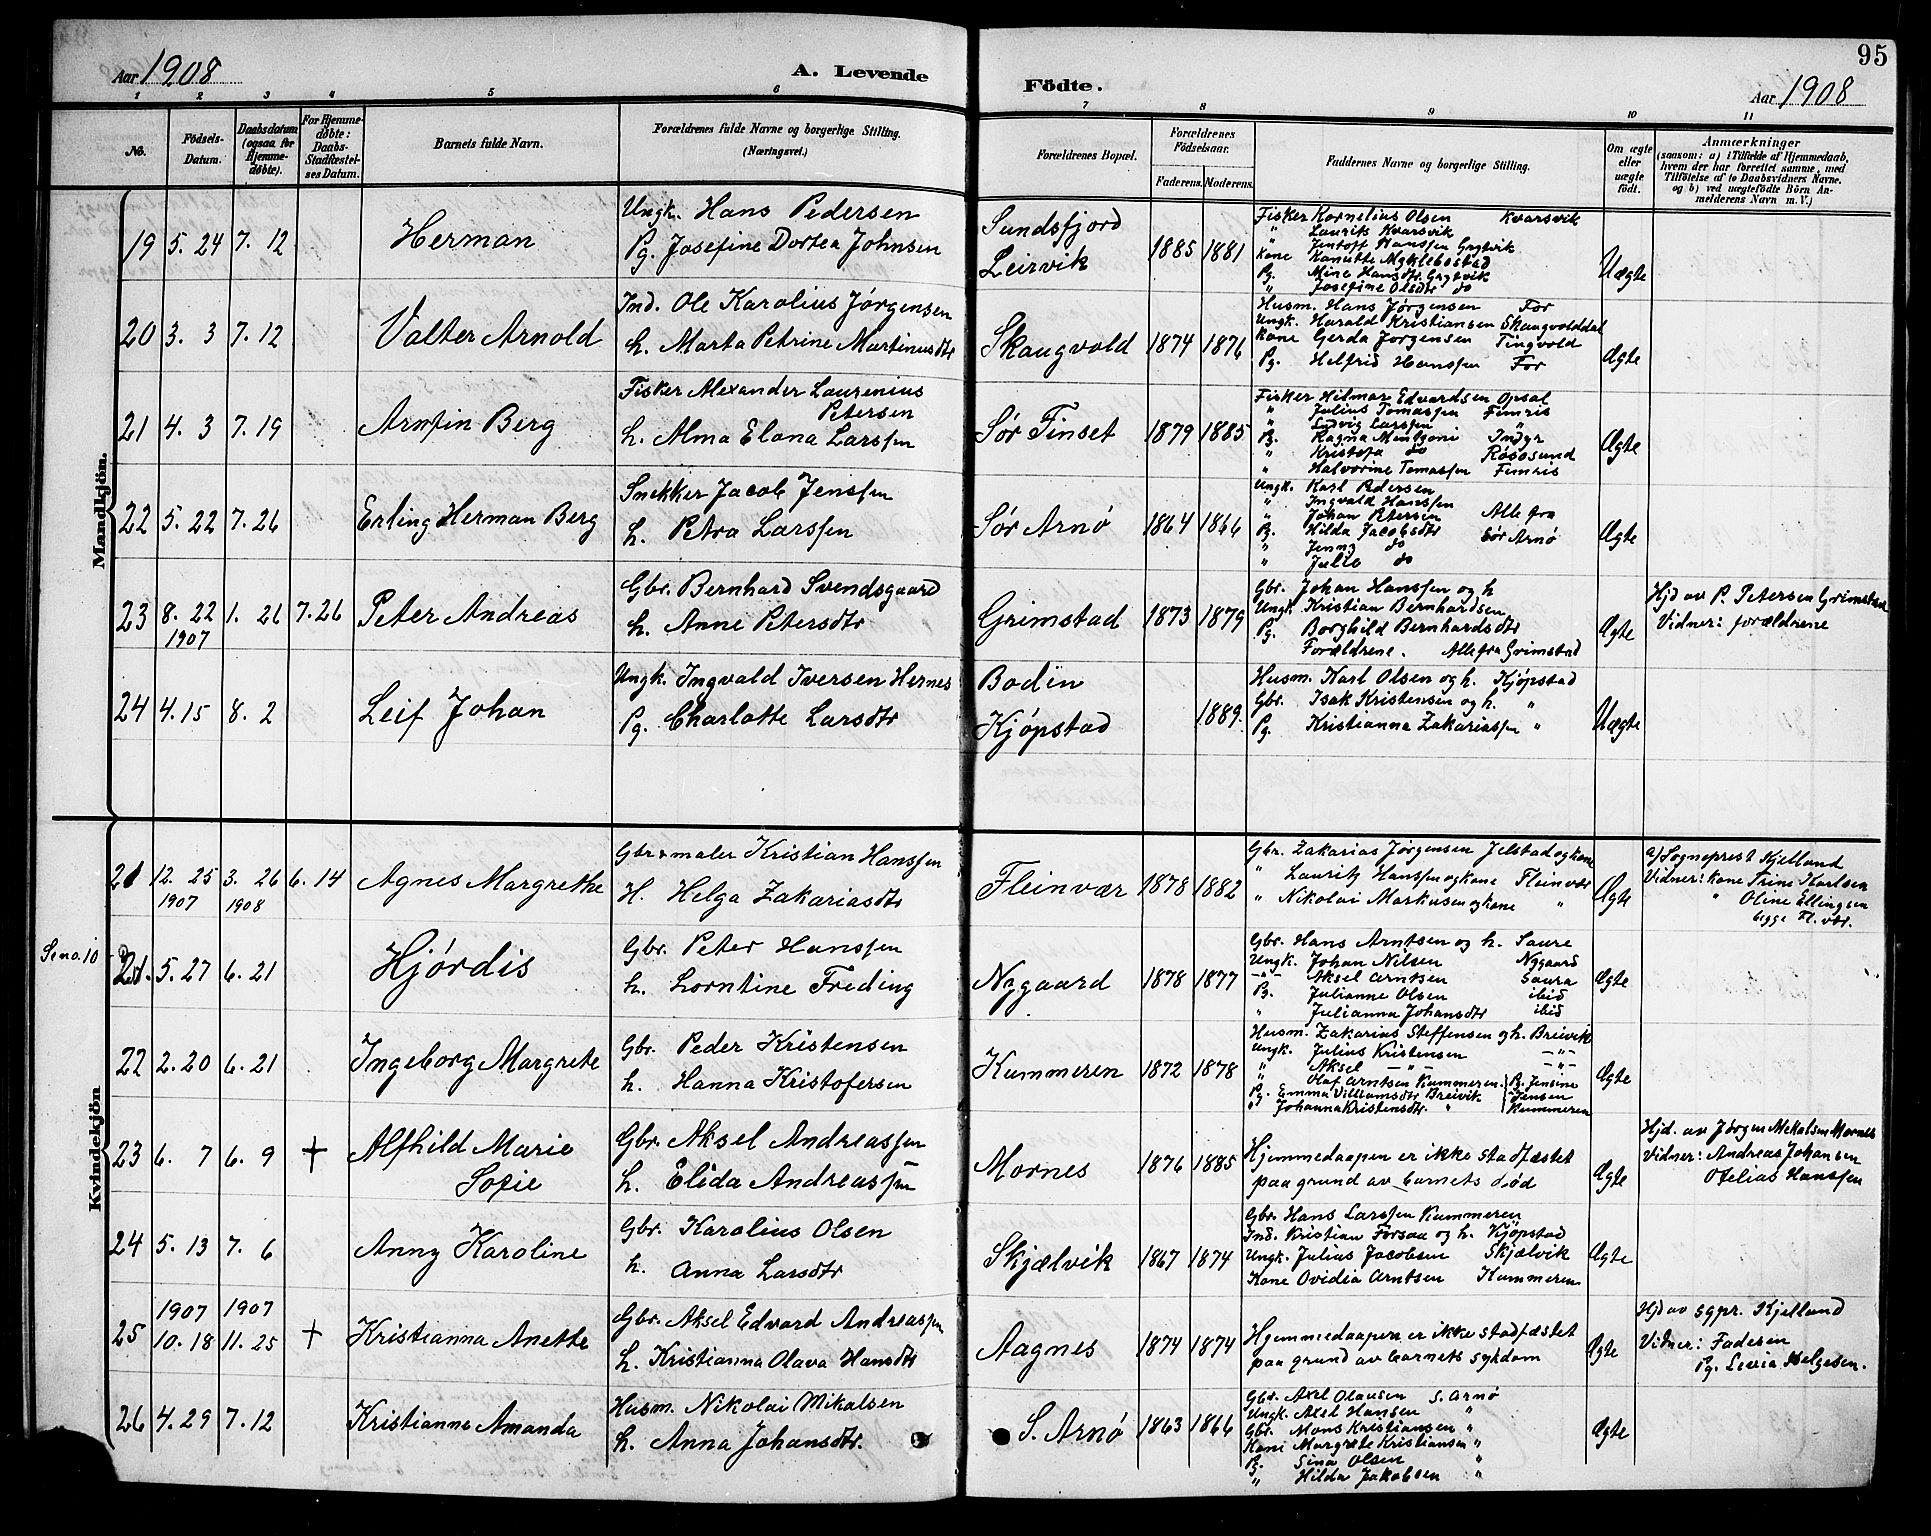 95
Aar 1908
A. Levende
Födte.
Aar 1908
1 2 3 4 5 6 7 8 9 10 11
No.
Födsels-
Datum.
Daabsdatum
(ogsaa for
Hjemme-
døbte).
For Hjemme-
døbte:
Daabs-
Stadfæstel-
ses Datum.
Barnets fulde Navn.
Forældrenes fulde Navne og borgerlige Stilling.
(Næringsvei.)
Forældrenes Bopæl.
Forældrenes
Fødselsaar.
Faderens. Moderens.
Faddernes Navne og borgerlige Stilling.
Om ægte
eller
uægte
født.
Anmærkninger
(saasom: a) i Tilfælde af Hjemmedaab,
hvem der har forrettet samme, med
Tilføielse af to Daabsvidners Navne.
og b) ved uægtefødte Börn An-
melderens Navn m. V.)
Mandkjön.
19 5. 24 7. 12 Herman
Ungk. Hans Pedersen
Pg. Josefine Dortea Johnsen
Sundsfjord
Leirvik
1885 1881
Fisker Kornelius Olsen Kvarsvik
" Laurits Kvarsvik
" Jentoft Hanssen Grytvik
Kone Kanutte Myklebostad
Pg. Mine Hansdtr. Grytvik
" Josefine Olsdtr do
Uægte
20 3. 3 7. 12 Valter Arnold
Ind. Ole Karolius Jørgensen
h. Marta Petrine Martinusdtr
Skaugvold 1874 1876
Husm. Hans Jørgensen For
Ungk. Harald Kristiansen Skaugvolddal
Kone Gerda Jørgensen Tingvold
Pg. Helfrid Hanssen For
Ægte
21 4. 3 7. 19 Arnfin Berg
Fisker Alexander Laurenius
Petersen
h. Alma Elona Larssen
Sør Finset 1879 1885
Fisker Hilmar Edvardsen Opsal
" Julius Tomassen Finnris
" Ludvig Larssen "
P. Ragna Mentzoni Indyr
" Kristofa do Røsøsund
" Halvorine Tomassen Finnris
Ægte
22 5. 22 7. 26 Erling Herman Berg
Snekker Jacob Jenssen
h. Petra Larssen
Sør Arnø 1864 1866
Ungk. Karl Pedersen
" Ingvald Hanssen
" Johan Petersen Alle fra
P. Hilda Jacobsdtr Sør Arnø
" Jenny do
" Julie do
Ægte
23 8. 22 1. 26 7.26 Peter Andreas
1907
Gbr. Bernhard Svendsgaard
h. Anne Petersdtr
Grimstad 1873 1879
Gbr. Johan Hanssen og h
Ungk. Kristian Bernhardsen
Pg. Borghild Bernhardsdtr
Forældrene. Alle fra Grimstad
Ægte
Hjd av P. Petersen Grimstad
Vidner: forældrene
24 4. 15 8. 2 Leif Johan
Ungk. Ingvald Iversen Hernes
Pg. Charlotte Larsdtr
Bodin
Kjøpstad
1889.
Husm. Karl Olsen og h. Kjøpstad
Gbr. Isak Kristensen og h. "
Pg. Kristianna Zakariassen "
Uægte
Kvindekjön
21 12. 25 3. 26 6. 14 Agnes Margrethe
1907 1908
Gbr & maler Kristian Hanssen
H. Helga Zakariasdtr
Fleinvær 1878 1882
Gbr. Zakarias Jørgensen Jelstad og kone
" Lauritz Hanssen og kone Fleinvær
" Nikolai Markusen og kone "
Ægte
a) Sogneprest Kjelland
Vidner: Kone Trine Karlsen
" Oline Ellingsen
begge Fl. vær.
Se no. 10
21. 5. 27 6. 21 Hjørdis
Gbr. Peter Hanssen
h. Lorntine Freding
Nygaard 1878 1877
Gbr. Hans Arntsen og h. Saure
Ungk. Johan Nilsen Nygaard
-"- Aksel Arntsen Saura
P. Julianne Olsen ibid
" Julianna Johansdtr ibid
Ægte
22 2. 20 6. 21 Ingeborg Margrete
Gbr. Peder Kristensen
h. Hanna Kristofersen
Kummeren 1872 1878
Husm. Zakarias Steffensen og h. Breivik
Ungk. Julius Kristensen -"-
" Aksel -"- -"-
" Olaf Arntsen Kummeren. P. Jensine
Pg. Emma Villumsdtr Breivik Jensen
" Johanna Kristensdtr. " Kummeren
Ægte
23 6. 7 6. 9 + Alfhild Marie
Sofie
Gbr. Aksel Andreassen
h. Elida Andreassen
Mornes 1876 1885
Hjemmedaapen er ikke stadfæstet
paa grund av barnets død
Ægte
Hjd. av Jørgen Mekalsen Mornes
Vidner: Andreas Johansen
Ofelias Hanssen
24 5. 13 7. 6 Anny Karoline
Gbr. Karolius Olsen
h. Anna Larsdtr
Skjælvik 1867 1874
Gbr. Hans Larssen Kummeren
Ind. Kristian Forsaa og h. Kjöpstad
Ungk. Julius Jacobsen Skjælvik
Kone Ovidia Arntsen Kummeren
Ægte
25 1907 1907
10. 18 11. 25 + Kristianna Anette
Gbr. Aksel Edvard Andreassen
h. Kristianna Olava Hansdtr
Aagnes 1874 1874
Hjemmedaapen er ikke stadfæstet
paa grund av barnets sykdom
Ægte
Hjd av sgpr. Kjelland
Vidner: Faderen
Pg. Levia Helgesen.
26 4. 29 7. 12 Kristianne Amanda
Husm. Nikolai Mikalsen
h. Anna Johansdtr.
S. Arnø 1863 1866
Gbr. Axel Olausen S. Arnø
Ungk. Axel Hansen "
Gbr. Mons Kristiansen "
Kone Margrete Kristiansen "
P. Sina Olsen "
" Hilda Jakobsen "
Ægte